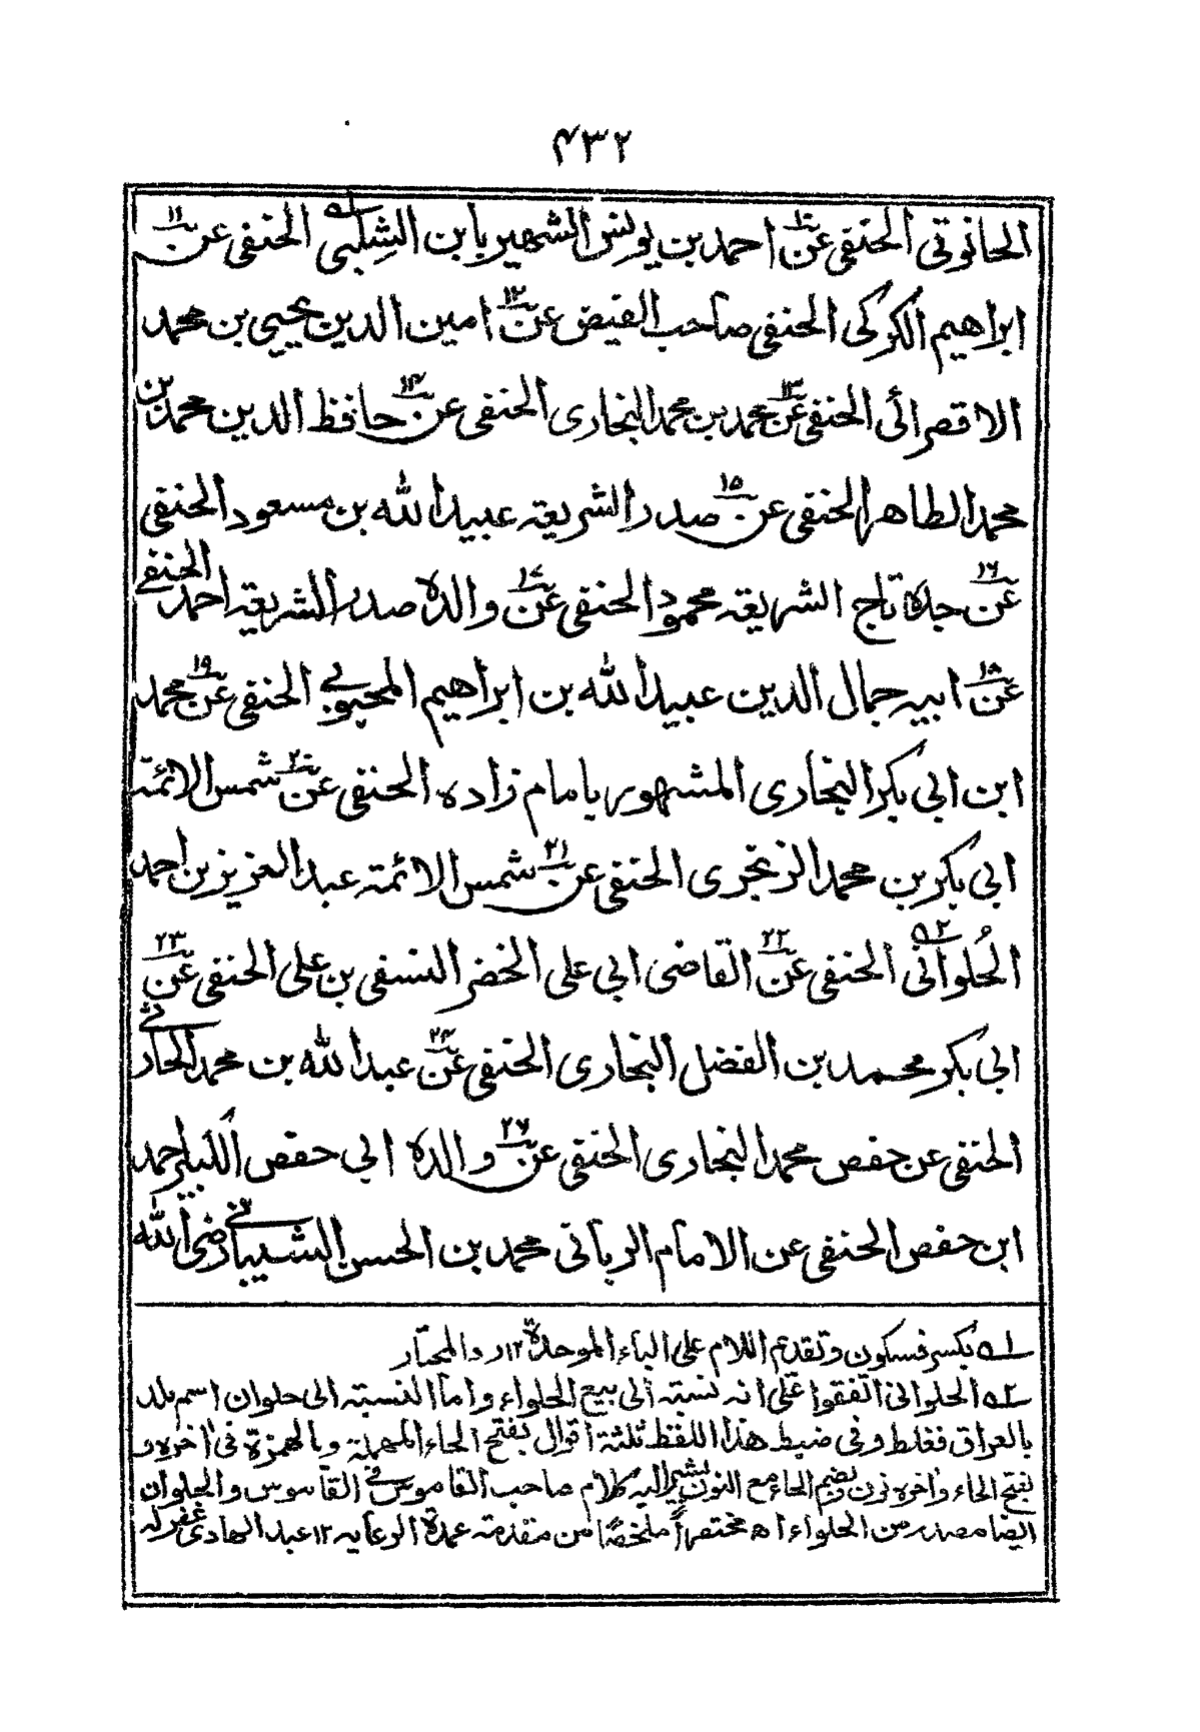 ۴۳۲
الحانوتی الحنفی عن۱۰ احمد بن یونس الشهیر بابن الشِلَبی ۱ الحنفی عن۱۱
ابراهیم الکرکی الحنفی صاحب الفیض عن۱۲ امین الدین یحیی بن محمد
الاقصرائی الحنفی عن۱۳ محمد بن محمد البخاری الحنفی عن۱۴ حافظ الدین محمد بن
محمد الطاهر الحنفی عن۱۵ صدر الشریعة عبید الله بن مسعود الحنفی
عن۱۶ جده تاج الشریعة محمود الحنفی عن۱۷ والده صدر الشریعة احمد الحنفی
عن۱۸ ابیه جمال الدین عبید الله بن ابراهیم المحبوبی الحنفی عن۱۹ محمد
ابن ابی بکر البخاری المشهور بامام زاده الحنفی عن۲۰ شمس الائمة
ابی بکر بن محمد الزرنجری الحنفی عن۲۱ شمس الائمة عبد العزیز بن احمد
الحُلوانی ۲ الحنفی عن۲۲ القاضی ابی علی الخضر النسفی بن علی الحنفی عن۲۳
ابی بکر محمد بن الفضل البخاری الحنفی عن۲۴ عبد الله بن محمد الحارثی
الحنفی عن حفص محمد البخاری الحنفی عن۲۷ والده ابی حفص الکبیر احمد
ابن حفص الحنفی عن الامام الربانی محمد بن الحسن الشیبانی رضی الله
۱ بکسر فسکون وتقدم اللام علی الباء الموحدة ۱۲ رد المحتار
۲ الحلوانی اتفقوا علی انه نسبته الی بیع الحلواء واما النسبة الی حلوان اسم بلد
بالعراق فغلط وفی ضبط هذا اللفظ ثلثة اقوال بفتح الحاء المهملة وبالهمزة فی اخره و
بفتح الحاء واخره نون وبضم الحاء مع النون یشیر الیه کلام صاحب القاموس فی القاموس والحلوان
ایضا مصدر من الحلواء اه مختصراً ملخصًا من مقدمة عمدة الرعایه ۱۲ عبد الهادی غفر له